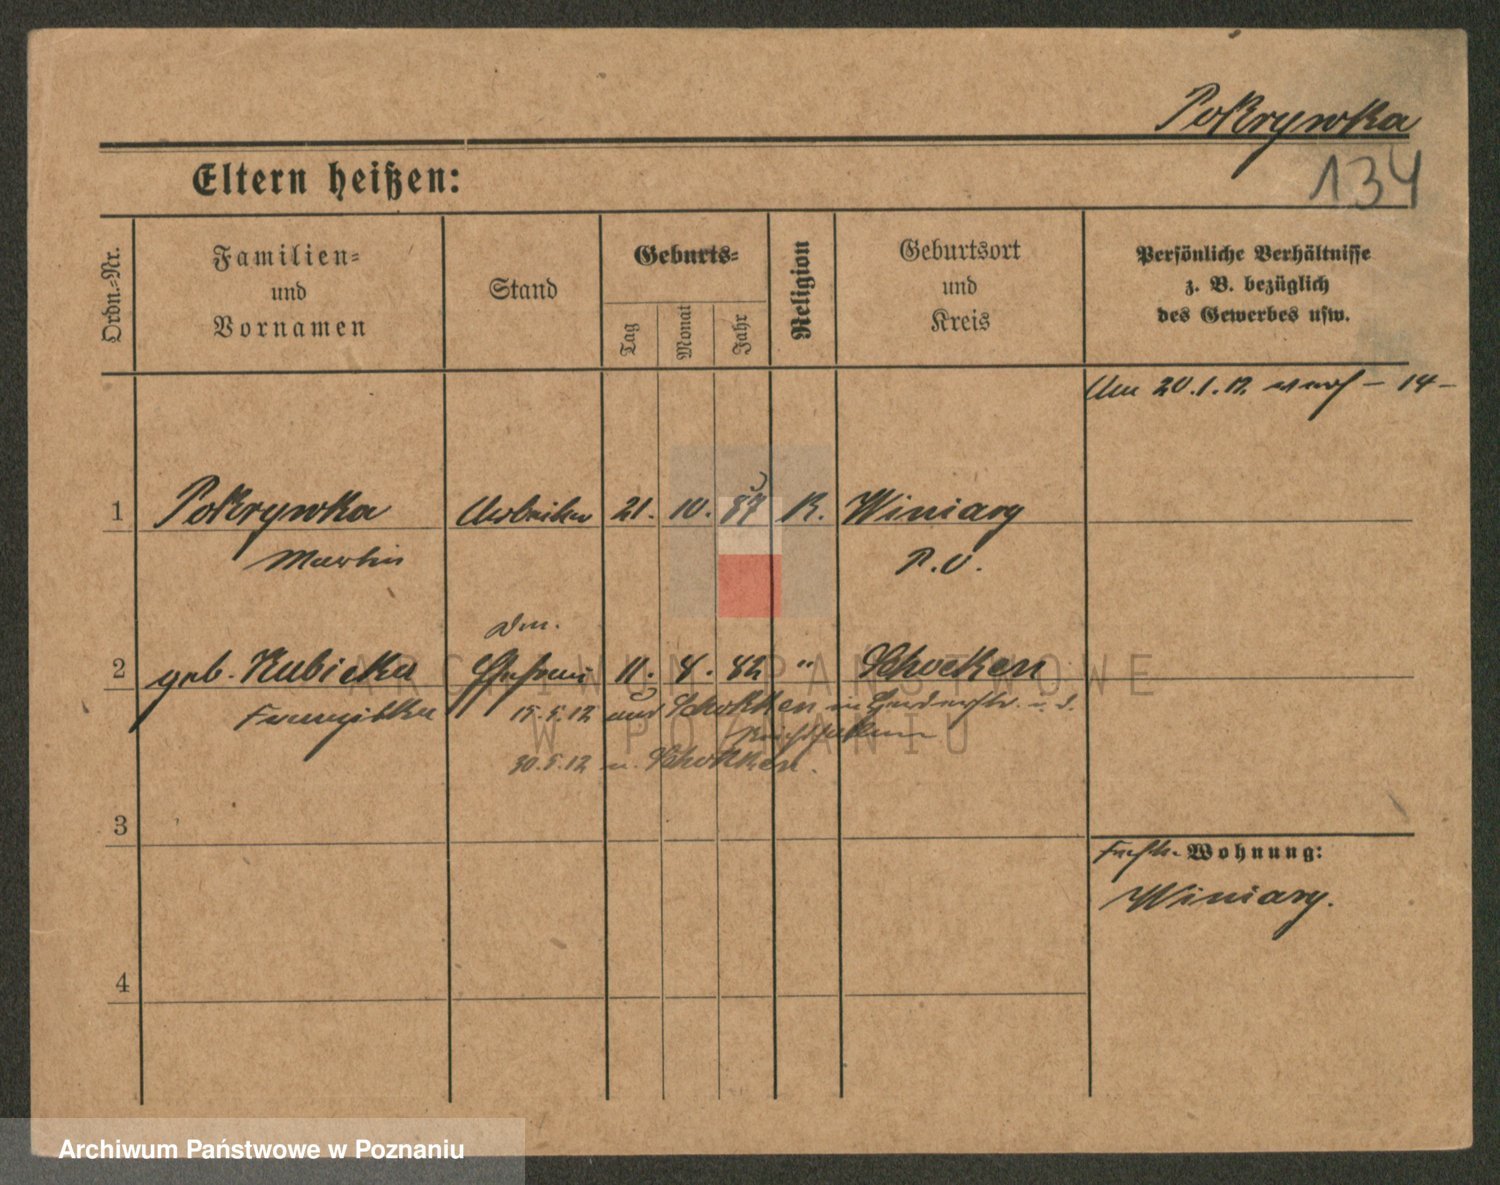 Pokrywka
134
Eltern heißen:
Ordn.-Nr.
Familien-
und
Vornamen
Stand
Geburts-
Tag
Monat
Jahr
Religion
Geburtsort
und
Kreis
Persönliche Verhältnisse
z. B. bezüglich
des Gewerbes usw.
Um 20.1.12 verh - 14 -
1 Pokrywka Arbeiter 21. 10. 87 K. Winiary
Martin P.O.
2 geb. Kubicka Ehefrau 11. 8. 82 " Schocken
Franziska 15.5.12 aus Schokken in
30.5.12 n. Schokken.
3
Wohnung:
Winiary.
4
ARCHIWUM PAŃSTWOWE
W POZNANIU
Archiwum Państwowe w Poznaniu